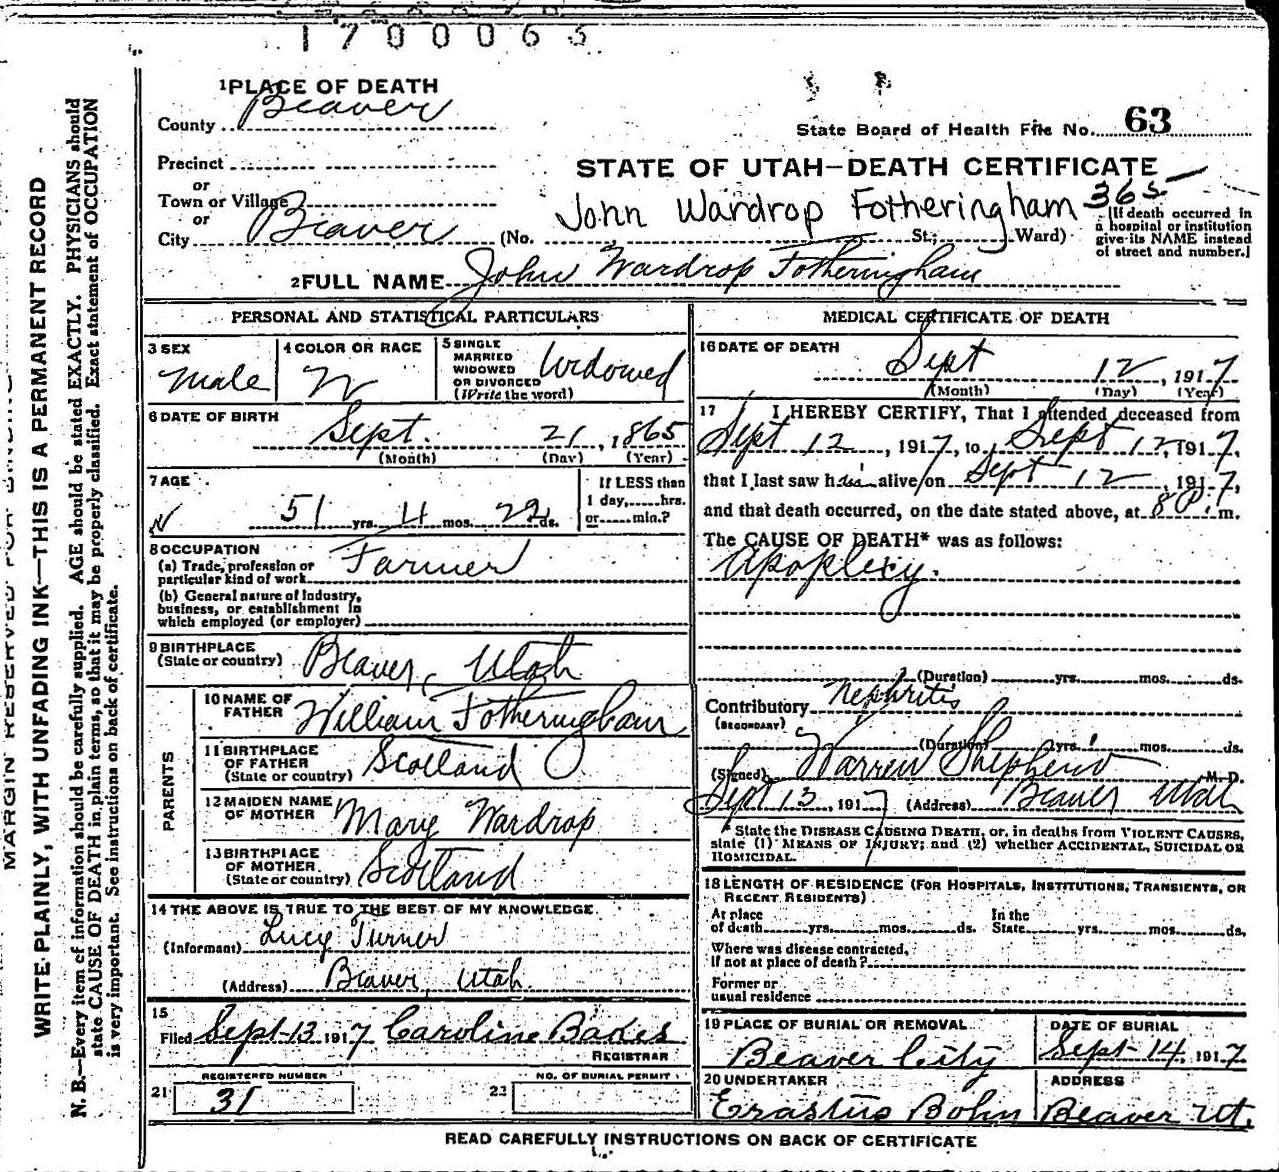 1700063
1 PLACE OF DEATH
County Beaver
State Board of Health File No. 63
Precinct
or
Town or Village
or
City Beaver
STATE OF UTAH—DEATH CERTIFICATE
365
John Wardrop Fotheringham
(No. St.; Ward)
[If death occurred in
a hospital or institution
give its NAME instead
of street and number.]
2 FULL NAME John Wardrop Fotheringham
PERSONAL AND STATISTICAL PARTICULARS
3 SEX
Male
4 COLOR OR RACE
W
5 SINGLE
MARRIED
WIDOWED
OR DIVORCED
(Write the word)
Widowed
6 DATE OF BIRTH
Sept. 21, 1865
(Month) (Day) (Year)
7 AGE
51 yrs. 11 mos. 22 ds.
If LESS than
1 day, hrs.
or min.?
8 OCCUPATION
(a) Trade, profession or
particular kind of work Farmer
(b) General nature of industry,
business, or establishment in
which employed (or employer)
9 BIRTHPLACE
(State or country) Beaver, Utah
PARENTS
10 NAME OF
FATHER William Fotheringham
11 BIRTHPLACE
OF FATHER
(State or country) Scotland
12 MAIDEN NAME
OF MOTHER Mary Wardrop
13 BIRTHPLACE
OF MOTHER
(State or country) Scotland
14 THE ABOVE IS TRUE TO THE BEST OF MY KNOWLEDGE.
(Informant) Lucy Turner
(Address) Beaver, Utah
15
Filed Sept 13 1917 Caroline Bakes
REGISTRAR
REGISTERED NUMBER
21 31
NO. OF BURIAL PERMIT
22
MEDICAL CERTIFICATE OF DEATH
16 DATE OF DEATH
Sept 12, 1917
(Month) (Day) (Year)
17 I HEREBY CERTIFY, That I attended deceased from
Sept 12, 1917, to Sept 12, 1917,
that I last saw him alive on Sept 12, 1917,
and that death occurred, on the date stated above, at 8 P. m.
The CAUSE OF DEATH* was as follows:
Apoplexy.
(Duration) yrs. mos. ds.
Contributory Nephritis
(SECONDARY)
(Duration) yrs. mos. ds.
(Signed) Warren Shepherd M. D.
Sept 13, 1917 (Address) Beaver Utah
* State the DISEASE CAUSING DEATH, or, in deaths from VIOLENT CAUSES,
state (1) MEANS OF INJURY; and (2) whether ACCIDENTAL, SUICIDAL OR
HOMICIDAL.
18 LENGTH OF RESIDENCE (FOR HOSPITALS, INSTITUTIONS, TRANSIENTS, OR
RECENT RESIDENTS)
At place
of death yrs. mos. ds.
In the
State yrs. mos. ds.
Where was disease contracted,
If not at place of death?
Former or
usual residence
19 PLACE OF BURIAL OR REMOVAL
Beaver City
DATE OF BURIAL
Sept 14, 1917.
20 UNDERTAKER
Erastus Bohn
ADDRESS
Beaver Ut.
READ CAREFULLY INSTRUCTIONS ON BACK OF CERTIFICATE
MARGIN RESERVED FOR BINDING
WRITE PLAINLY, WITH UNFADING INK—THIS IS A PERMANENT RECORD
N. B.—Every item of information should be carefully supplied. AGE should be stated EXACTLY. PHYSICIANS should
state CAUSE OF DEATH in plain terms, so that it may be properly classified. Exact statement of OCCUPATION
is very important. See instructions on back of certificate.